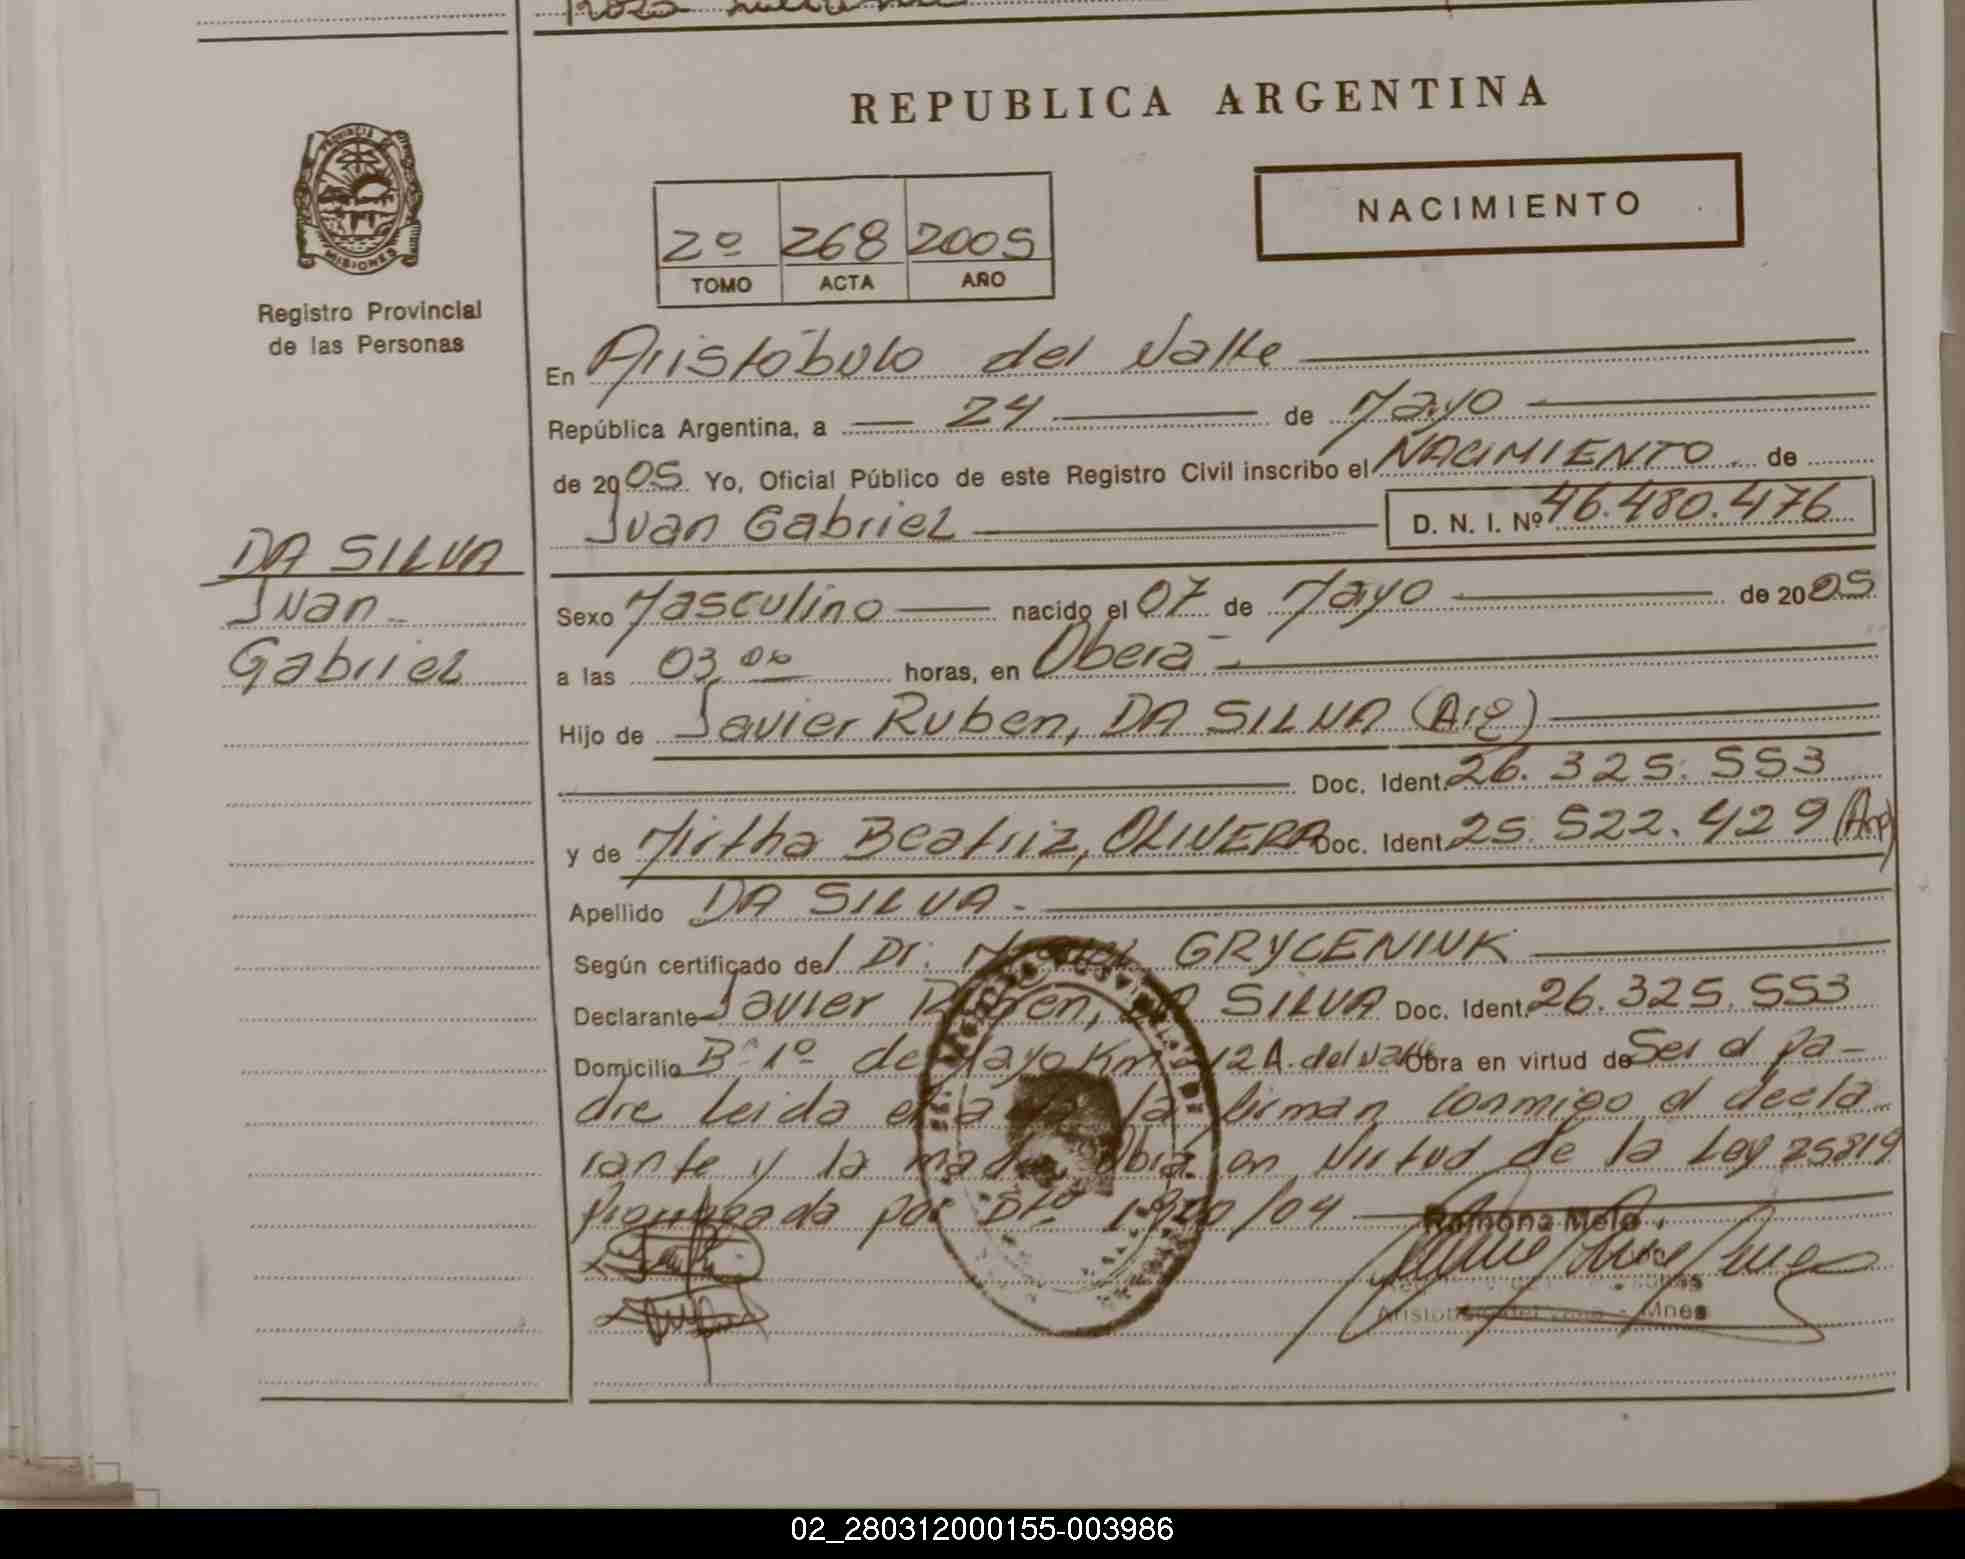 REPUBLICA ARGENTINA
PROVINCIA
MISIONES
Registro Provincial
de las Personas
NACIMIENTO
2º 268 2005
TOMO ACTA AÑO
En Aristóbulo del Valle
República Argentina, a 24 de Mayo
de 2005 Yo, Oficial Público de este Registro Civil inscribo el NACIMIENTO de
Juan Gabriel D. N. I. Nº 46.480.476
DA SILVA
Juan
Gabriel
Sexo Masculino nacido el 07 de Mayo de 2005
a las 03,00 horas, en Oberá
Hijo de Javier Ruben, DA SILVA (Arg)
Doc. Ident. 26.325.553
y de Mirtha Beatriz, OLIVERA Doc. Ident. 25.522.429 (Arg)
Apellido DA SILVA
Según certificado del Dr. GRYCENIUK
Declarante Javier Ruben, DA SILVA Doc. Ident. 26.325.553
Domicilio Bº 1º de Mayo Km 12 A. del Valle Obra en virtud de Ser el pa-
dre leida el acta la firman conmigo el decla
rante y la madre Obra en virtud de la Ley 25819
Prorrogada por Dto 1.920/04
Ramona
Mnes
02_280312000155-003986